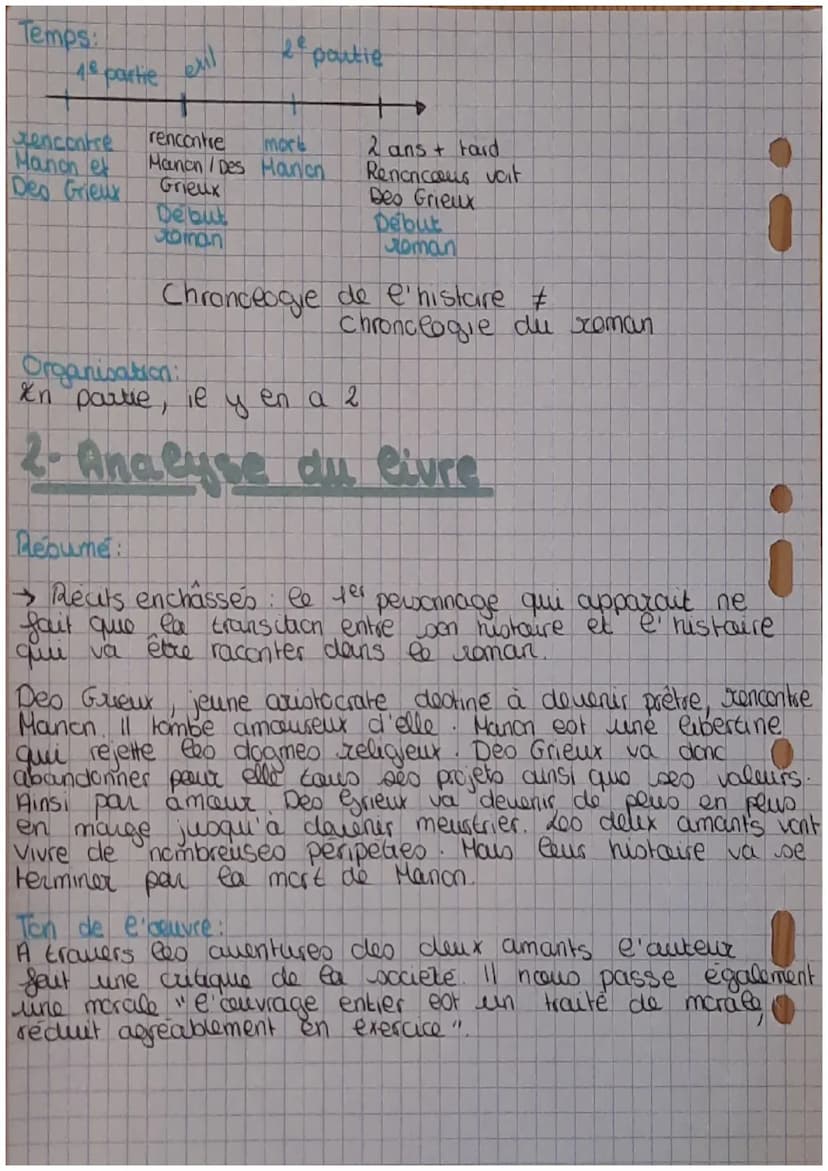 Temps:
1e partie exil 2e partie
rencontre Manon et Des Grieux
rencontre Manon / Des Grieux Début roman
mort Manon
2 ans + tard Renoncours voit Des Grieux Début roman
Chronologie de l'histoire ≠
Chronologie du roman
Organisation:
En partie, il y en a 2
2- Analyse du livre
Résumé:
→ Récits enchâssés : le 1er personnage qui apparait ne
fait que la transition entre son histoire et l'histoire
qui va être raconter dans le roman.
Des Grieux, jeune aristocrate destiné à devenir prêtre, rencontre
Manon. Il tombe amoureux d'elle. Manon est une libertine
qui rejette les dogmes religieux. Des Grieux va donc
abandonner pour elle tous ses projets ainsi que ses valeurs.
Ainsi par amour, Des Grieux va devenir de plus en plus
en marge jusqu'à devenir meurtrier. Les deux amants vont
vivre de nombreuses péripéties. Mais leurs histoire va se
terminer par la mort de Manon.
Ton de l'œuvre:
A travers les aventures des deux amants l'auteur
fait une critique de la société. Il nous passe également
une morale "l'ouvrage entier est un traité de morale,
réduit agréablement en exercice".